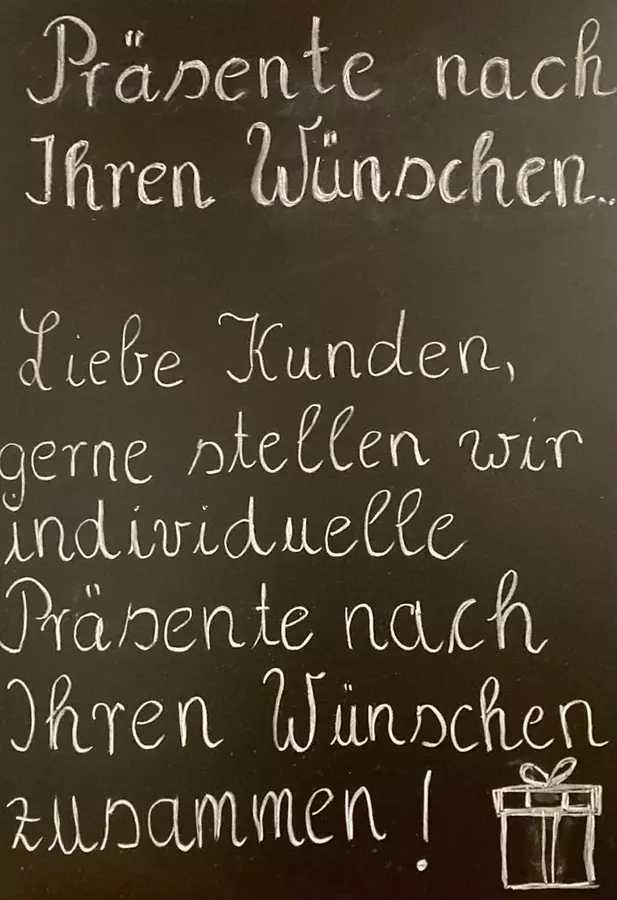 Präsente nach
Ihren Wünschen..
Liebe Kunden,
gerne stellen wir
individuelle
Präsente nach
Ihren Wünschen
zusammen!